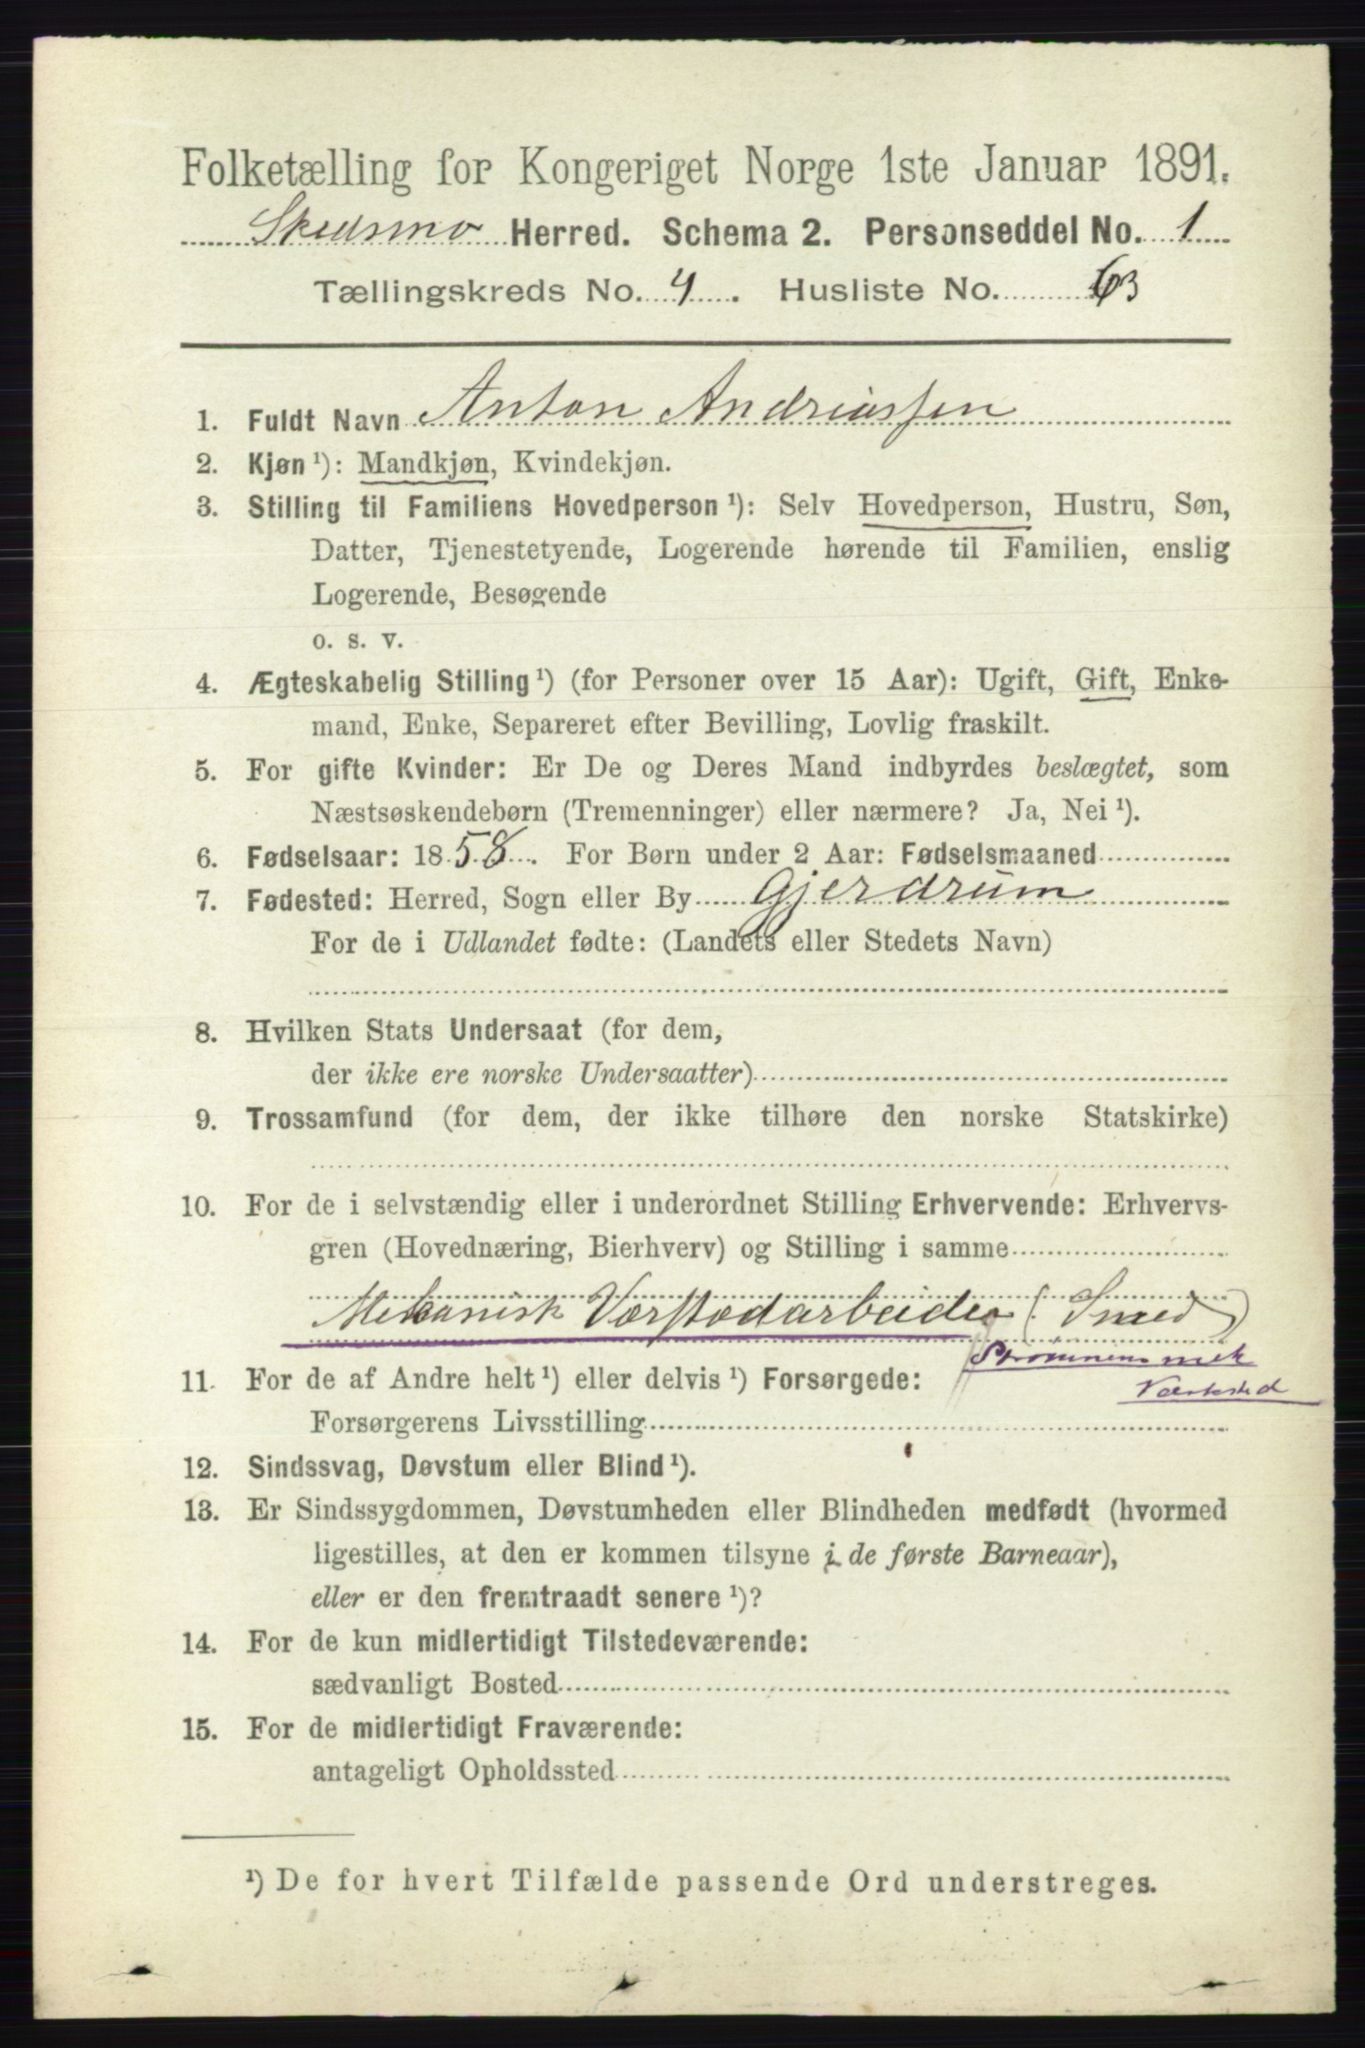 Folketælling for Kongeriget Norge 1ste Januar 1891.
Skedsmo Herred. Schema 2. Personseddel No. 1
Tællingskreds No. 4. Husliste No. 63
1. Fuldt Navn Anton Andriassen
2. Kjøn ¹): Mandkjøn, Kvindekjøn.
3. Stilling til Familiens Hovedperson ¹): Selv Hovedperson, Hustru, Søn,
Datter, Tjenestetyende, Logerende hørende til Familien, enslig
Logerende, Besøgende
o. s. v.
4. Ægteskabelig Stilling ¹) (for Personer over 15 Aar): Ugift, Gift, Enke-
mand, Enke, Separeret efter Bevilling, Lovlig fraskilt.
5. For gifte Kvinder: Er De og Deres Mand indbyrdes beslægtet, som
Næstsøskendebørn (Tremenninger) eller nærmere? Ja, Nei ¹).
6. Fødselsaar: 1858. For Børn under 2 Aar: Fødselsmaaned
7. Fødested: Herred, Sogn eller By Gjerdrum
For de i Udlandet fødte: (Landets eller Stedets Navn)
8. Hvilken Stats Undersaat (for dem,
der ikke ere norske Undersaatter)
9. Trossamfund (for dem, der ikke tilhøre den norske Statskirke)
10. For de i selvstændig eller i underordnet Stilling Erhvervende: Erhvervs-
gren (Hovednæring, Bierhverv) og Stilling i samme
Mekanisk Værstedarbeider (Smed)
Strømmens mek
Værksted
11. For de af Andre helt ¹) eller delvis ¹) Forsørgede:
Forsørgerens Livsstilling
12. Sindssvag, Døvstum eller Blind ¹).
13. Er Sindssygdommen, Døvstumheden eller Blindheden medfødt (hvormed
ligestilles, at den er kommen tilsyne i de første Barneaar),
eller er den fremtraadt senere ¹)?
14. For de kun midlertidigt Tilstedeværende:
sædvanligt Bosted
15. For de midlertidigt Fraværende:
antageligt Opholdssted
¹) De for hvert Tilfælde passende Ord understreges.